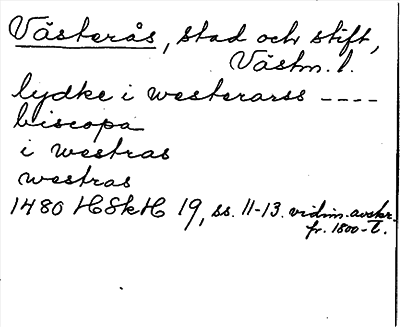 Västerås, stad och stift,
Västm. l.
lydke i westerarss ----
biscopa
i westras
westras
1480 HSkH 19, ss. 11-13. vidim. avskr.
fr. 1800-t.